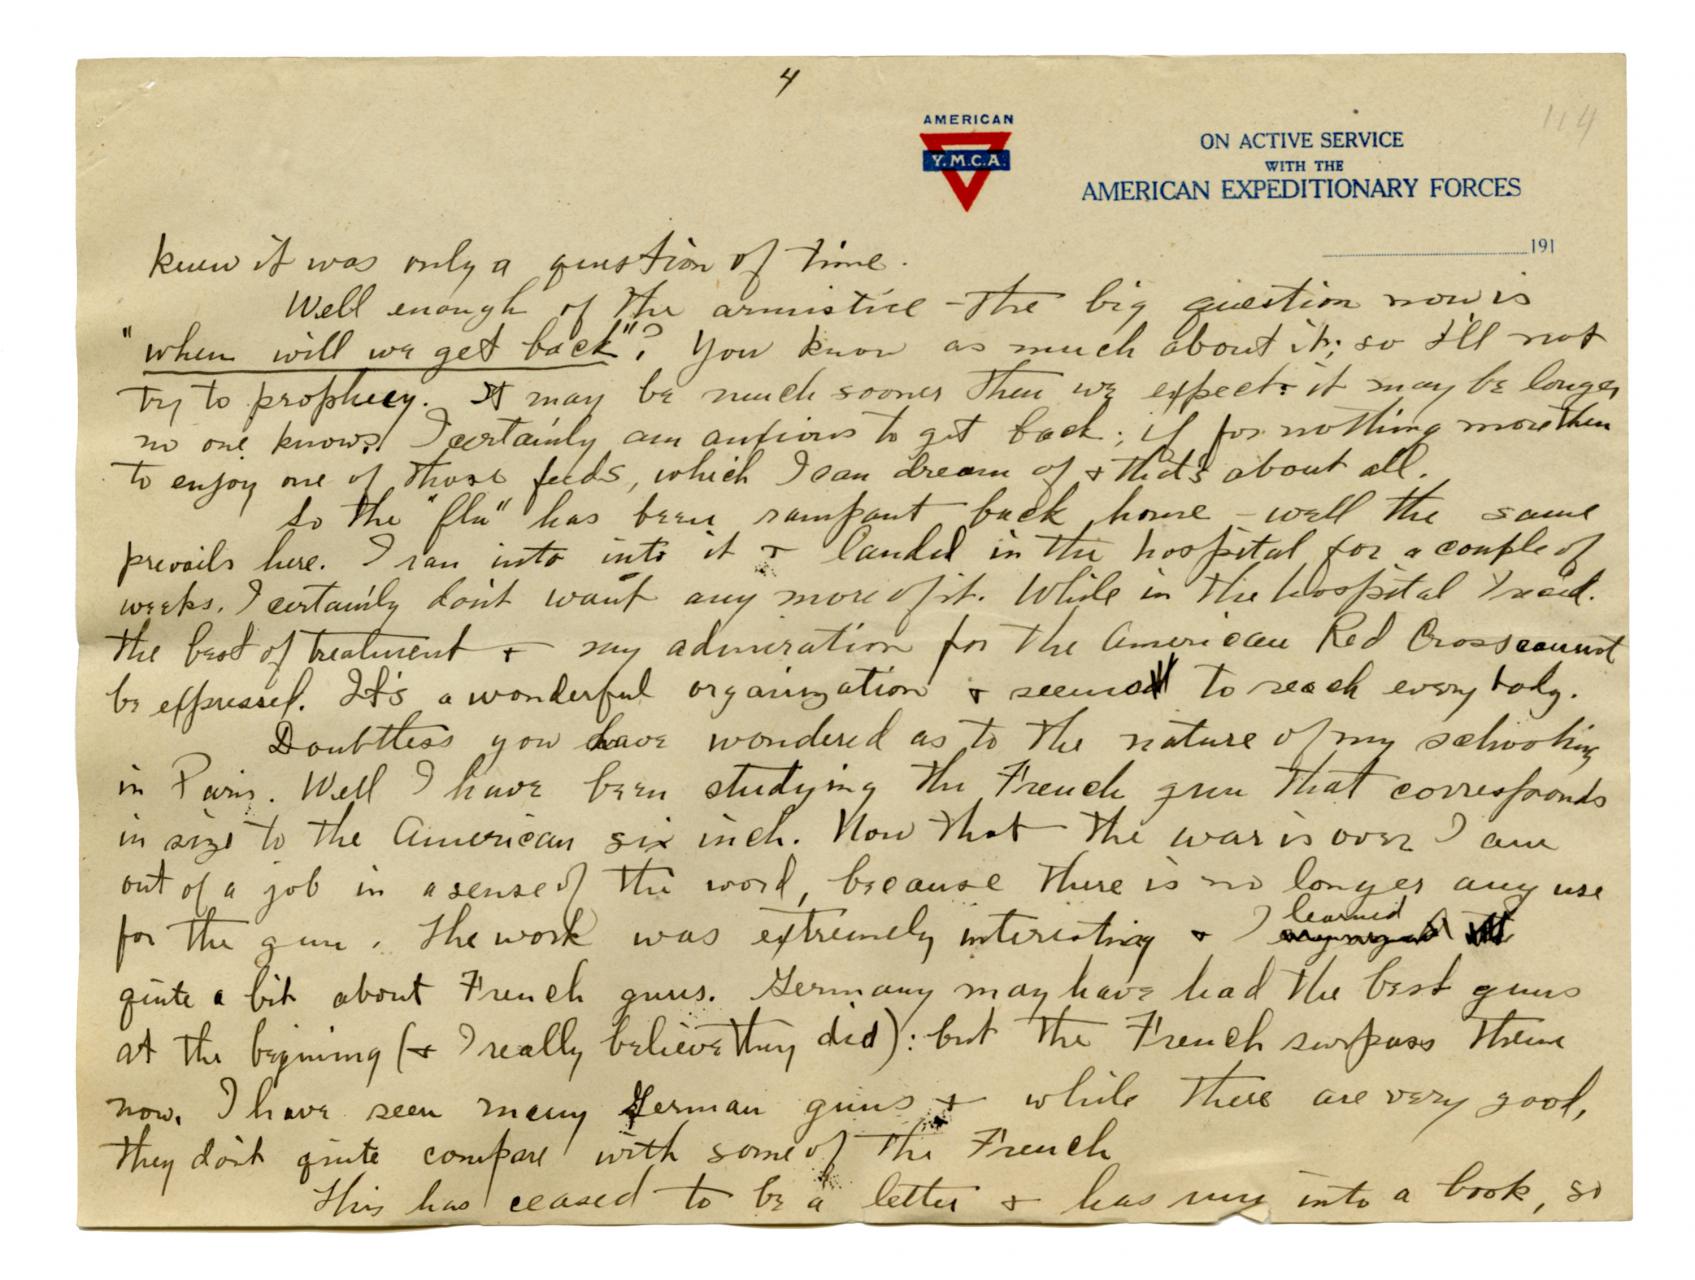 4
114
AMERICAN
Y.M.C.A.
ON ACTIVE SERVICE
WITH THE
AMERICAN EXPEDITIONARY FORCES
191
knew it was only a question of time.
Well enough of the armistice - the big question now is
"when will we get back"? You know as much about it; so I'll not
try to prophecy. It may be much sooner then we expect: it may be longer
no one knows. I certainly am anxious to get back; if for nothing more then
to enjoy one of those feeds, which I can dream of & that's about all.
So the "flu" has been rampant back home - well the same
prevails here. I ran into into it & landed in the hospital for a couple of
weeks. I certainly don't want any more of it. While in the hospital I rec'd.
the best of treatment & my admiration for the American Red Cross cannot
be expressed. It's a wonderful organization & seems to reach every body.
Doubtless you have wondered as to the nature of my schooling
in Paris. Well I have been studying the French gun that corresponds
in size to the American six inch. Now that the war is over I am
out of a job in a sense of the word, because there is no longer any use
for the gun. The work was extremely interesting & I learned
quite a bit about French guns. Germany may have had the best guns
at the begining (& I really believe they did): but the French surpass them
now. I have seen many German guns & while there are very good,
they don't quite compare with some of the French
This has ceased to be a letter & has run into a book, so